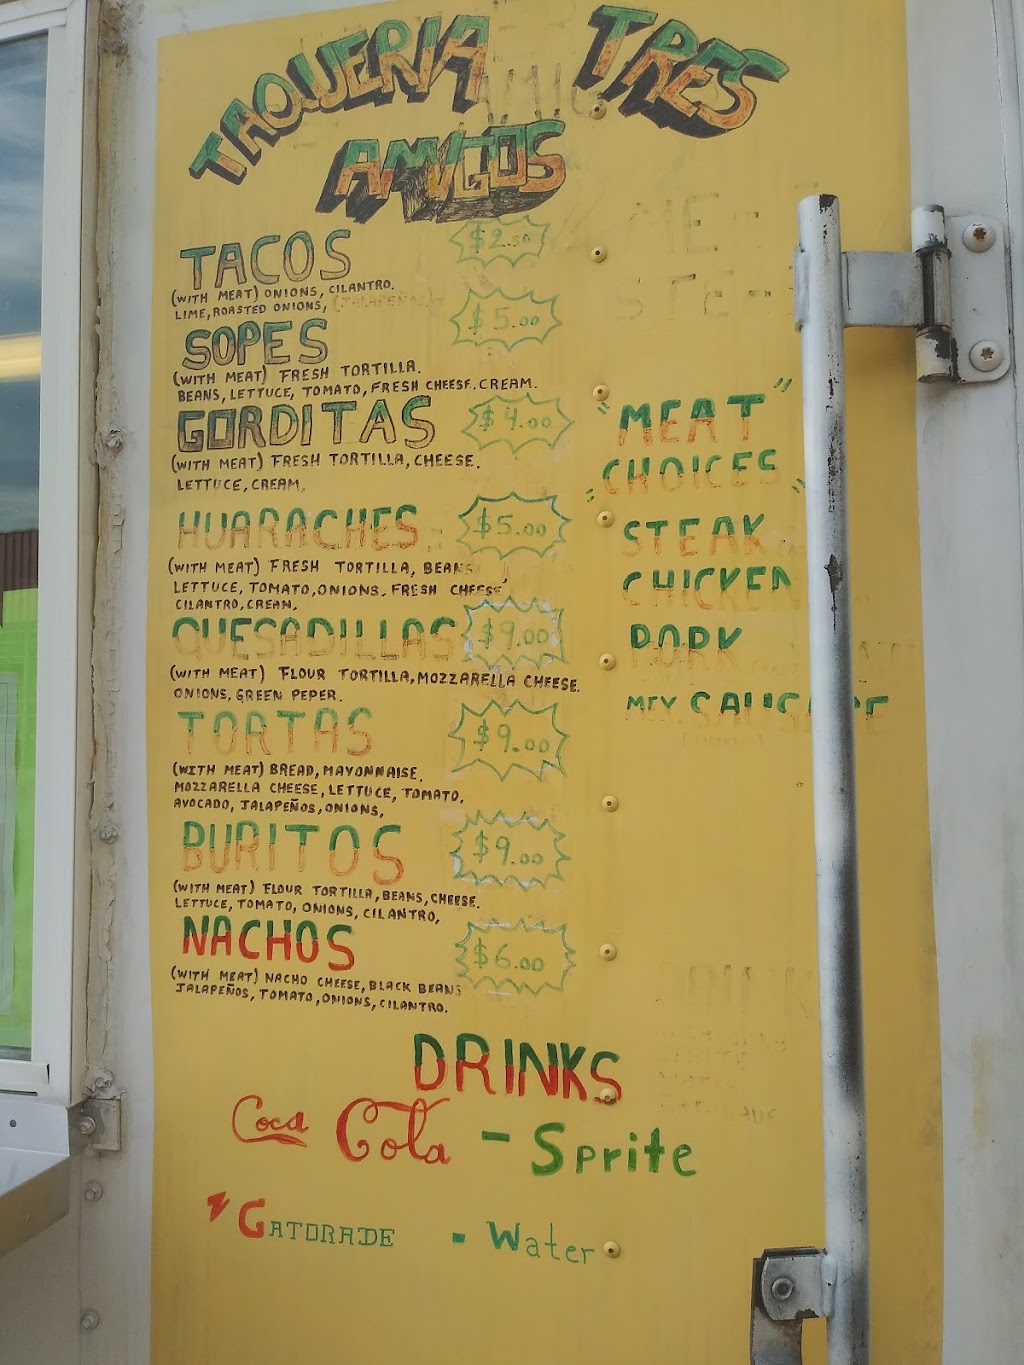 TAQUERIA TRES
AMIGOS
TACOS $2.50
(WITH MEAT) ONIONS, CILANTRO.
LIME, ROASTED ONIONS, (JALAPEÑO)
SOPES $5.00
(WITH MEAT) FRESH TORTILLA.
BEANS, LETTUCE, TOMATO, FRESH CHEESE. CREAM.
GORDITAS $4.00
(WITH MEAT) FRESH TORTILLA, CHEESE.
LETTUCE, CREAM.
HUARACHES $5.00
(WITH MEAT) FRESH TORTILLA, BEANS,
LETTUCE, TOMATO, ONIONS. FRESH CHEESE,
CILANTRO, CREAM.
QUESADILLAS $9.00
(WITH MEAT) FLOUR TORTILLA, MOZZARELLA CHEESE.
ONIONS, GREEN PEPER.
TORTAS $9.00
(WITH MEAT) BREAD, MAYONNAISE,
MOZZARELLA CHEESE, LETTUCE, TOMATO,
AVOCADO, JALAPEÑOS, ONIONS,
BURITOS $9.00
(WITH MEAT) FLOUR TORTILLA, BEANS, CHEESE.
LETTUCE, TOMATO, ONIONS, CILANTRO,
NACHOS $6.00
(WITH MEAT) NACHO CHEESE, BLACK BEANS
JALAPEÑOS, TOMATO, ONIONS, CILANTRO.
"MEAT"
"CHOICES"
STEAK
CHICKEN
PORK
MEX SAUSAGE
DRINKS
Coca Cola - Sprite
GATORADE - Water